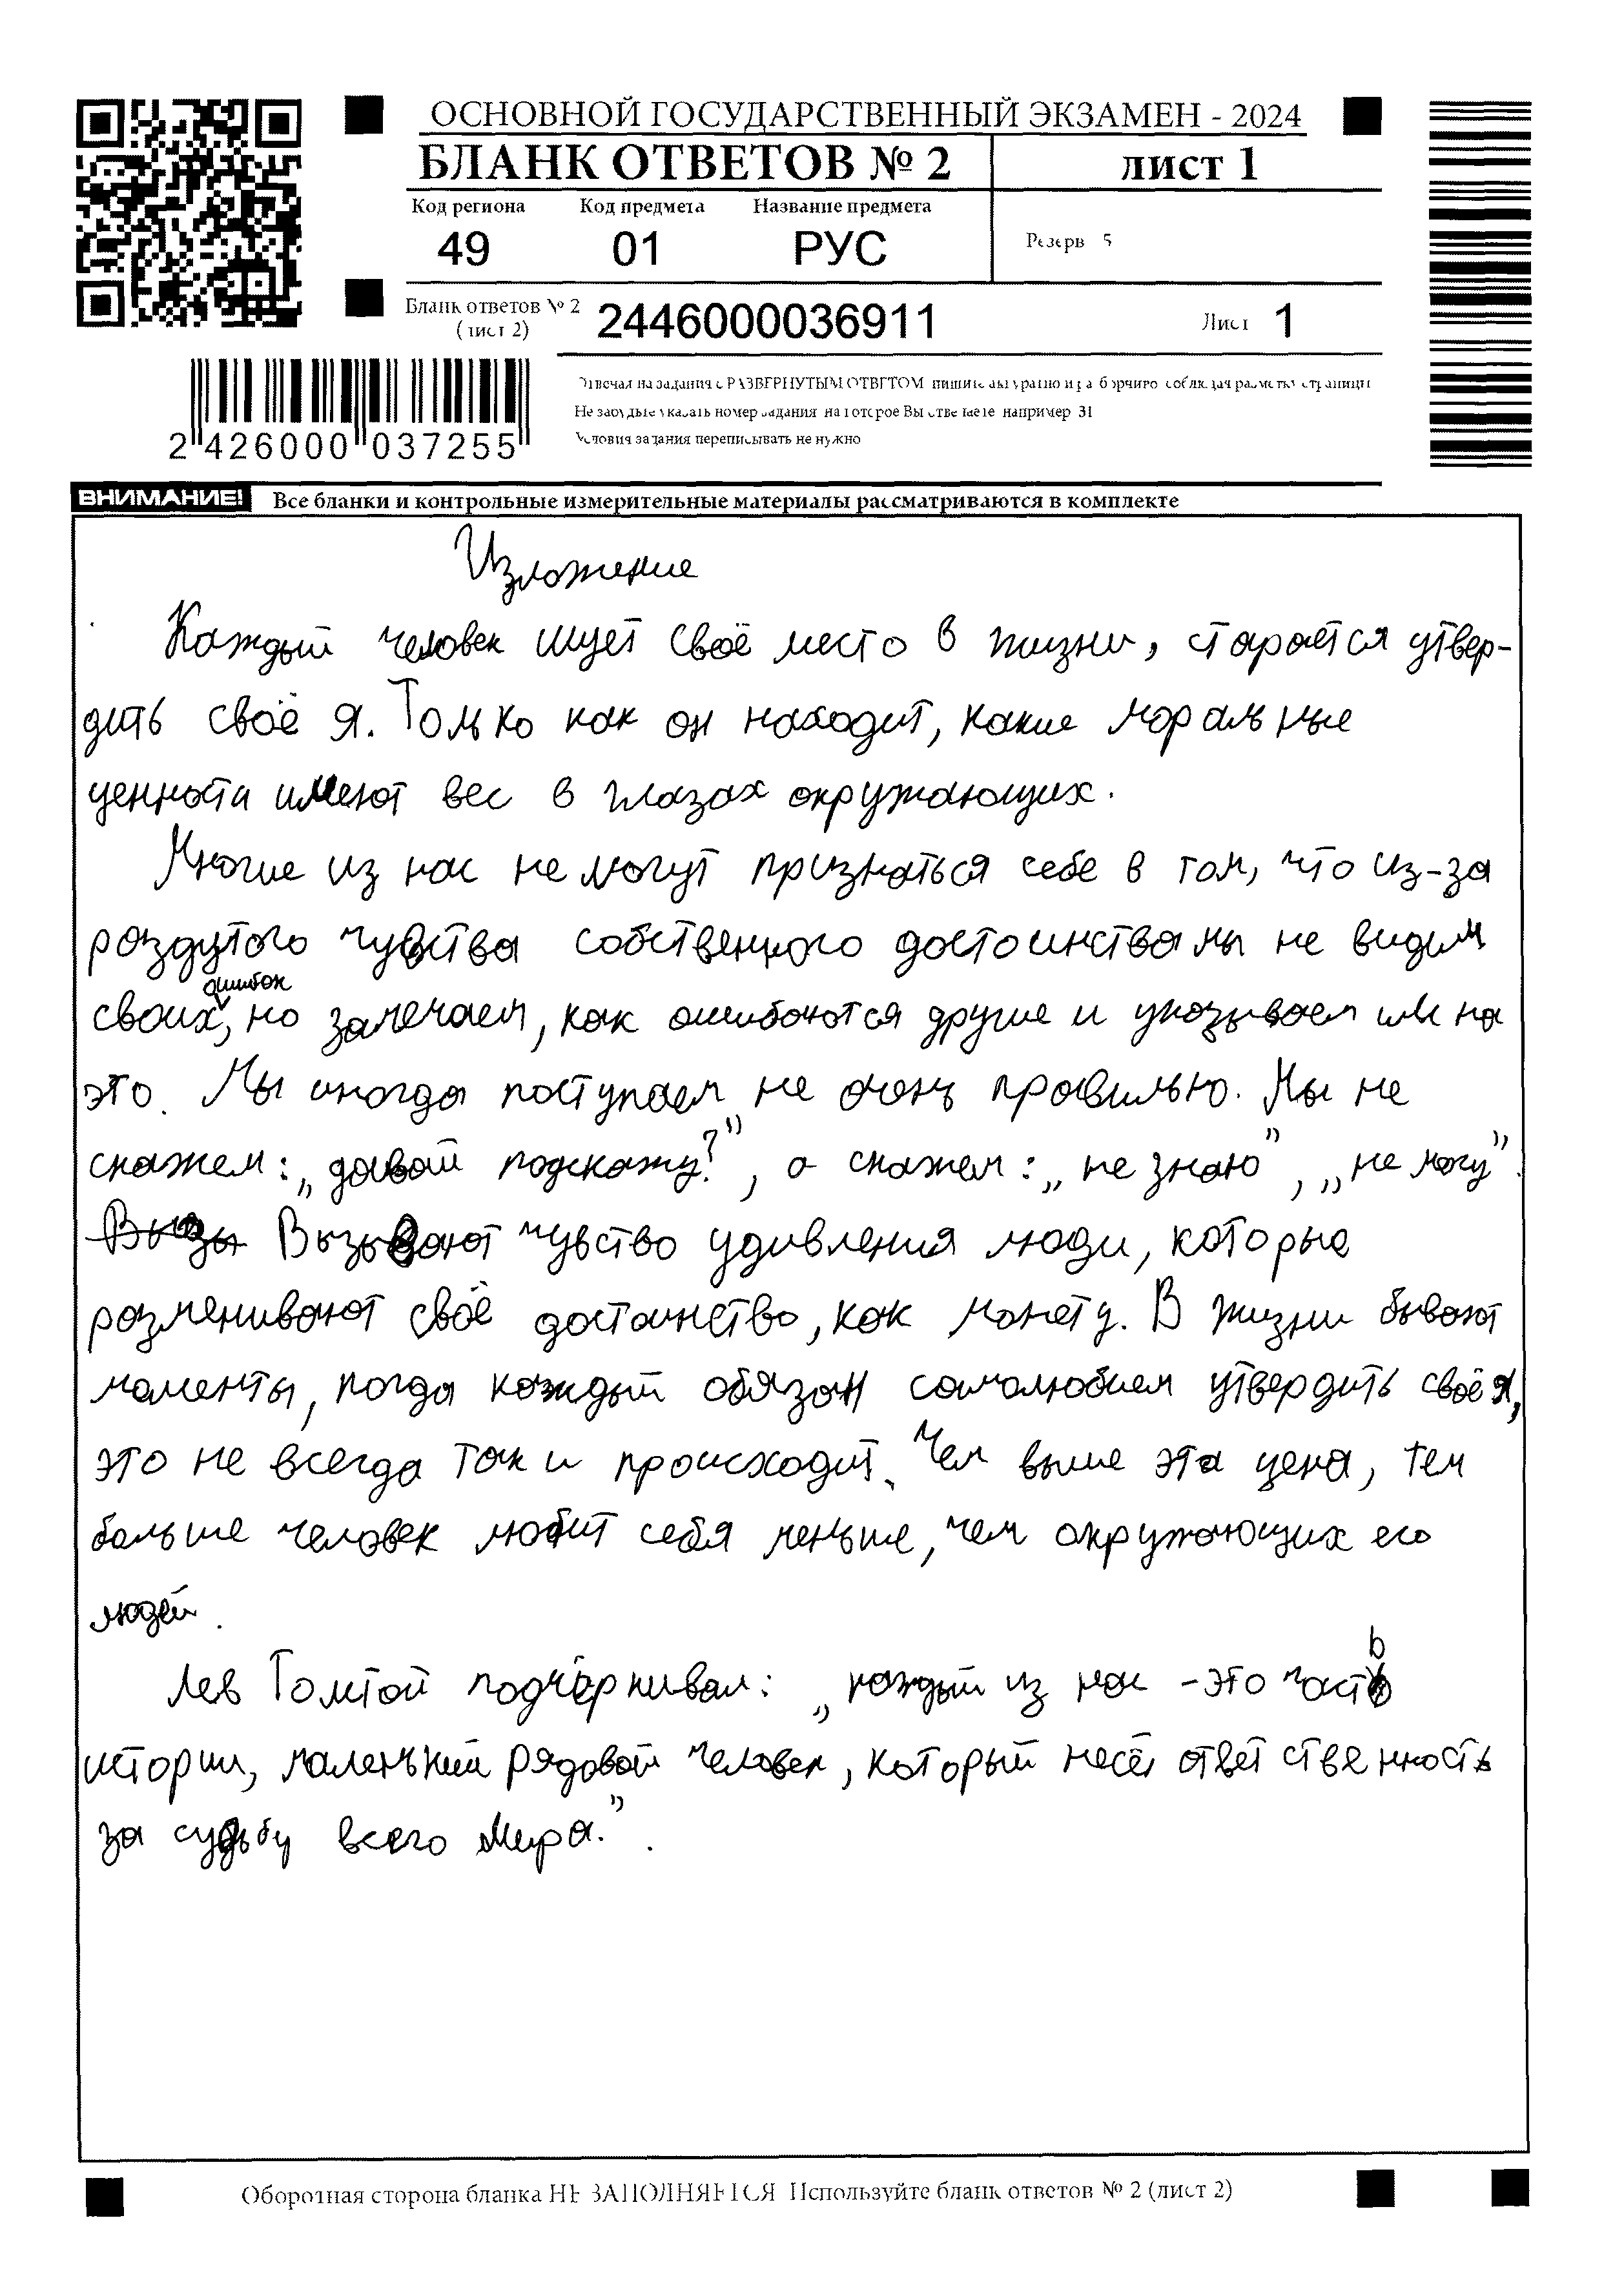 ОСНОВНОЙ ГОСУДАРСТВЕННЫЙ ЭКЗАМЕН - 2024
БЛАНК ОТВЕТОВ № 2 лист 1
Код региона Код предмета Название предмета
49 01 РУС Резерв 5
Бланк ответов № 2 (лист 2) 2446000036911 Лист 1
Отвечая на задания с РАЗВЕРНУТЫМ ОТВЕТОМ пишите аккуратно и разборчиво соблюдая разметку страницы
Не забудьте указать номер задания на которое Вы отвечаете например 31
Условия задания переписывать не нужно
2 426000 037255
ВНИМАНИЕ! Все бланки и контрольные измерительные материалы рассматриваются в комплекте
Изложение
Каждый человек ищет своё место в жизни, старается утвер-
дить своё я. Только как он находит, какие моральные
ценности имеют вес в глазах окружающих.
Многие из нас не могут признаться себе в том, что из-за
раздутого чувства собственного достоинства мы не видим
своих ошибок, но замечаем, как ошибаются другие и указываем им на
это. Мы иногда поступаем не очень правильно. Мы не
скажем: „давай подскажу?", а скажем: „не знаю", „не могу".
Вызы Вызывают чувство удивления люди, которые
разменивают своё достоинство, как монету. В жизни бывают
моменты, когда каждый обязан самолюбием утвердить своё я,
это не всегда так и происходит. Чем выше эта цена, тем
больше человек любит себя меньше, чем окружающих его
людей.
Лев Толстой подчёркивал: „каждый из нас - это часть
истории, маленький рядовой человек, который несёт ответственность
за судьбу всего Мира.".
Оборотная сторона бланка НЕ ЗАПОЛНЯЕТСЯ Используйте бланк ответов № 2 (лист 2)